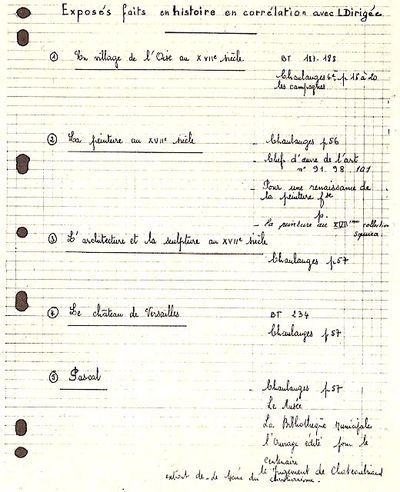 Exposés faits en histoire en corrélation avec L Dirigée
① Un village de l'Oise au XVIIe siècle
BT 187-188
Chaulanges 6e p 18 à 20
les campagnes
② La peinture au XVIIe siècle
- Chaulanges p 56
- Chef d'œuvre de l'art
n° 91. 98. 101
- Pour une renaissance de
la peinture fse
p.
- La peinture au XVIIème collection
③ L'architecture et la sculpture au XVIIe siècle
Chaulanges p.57
④ Le château de Versailles
BT 234
Chaulanges p.57
⑤ Pascal
- Chaulanges p.57
Le Musée
La Bibliothèque Municipale
l'Ouvrage édité pour le
centenaire
le Jugement de Chateaubriand
extrait de - Le Génie du christianisme.